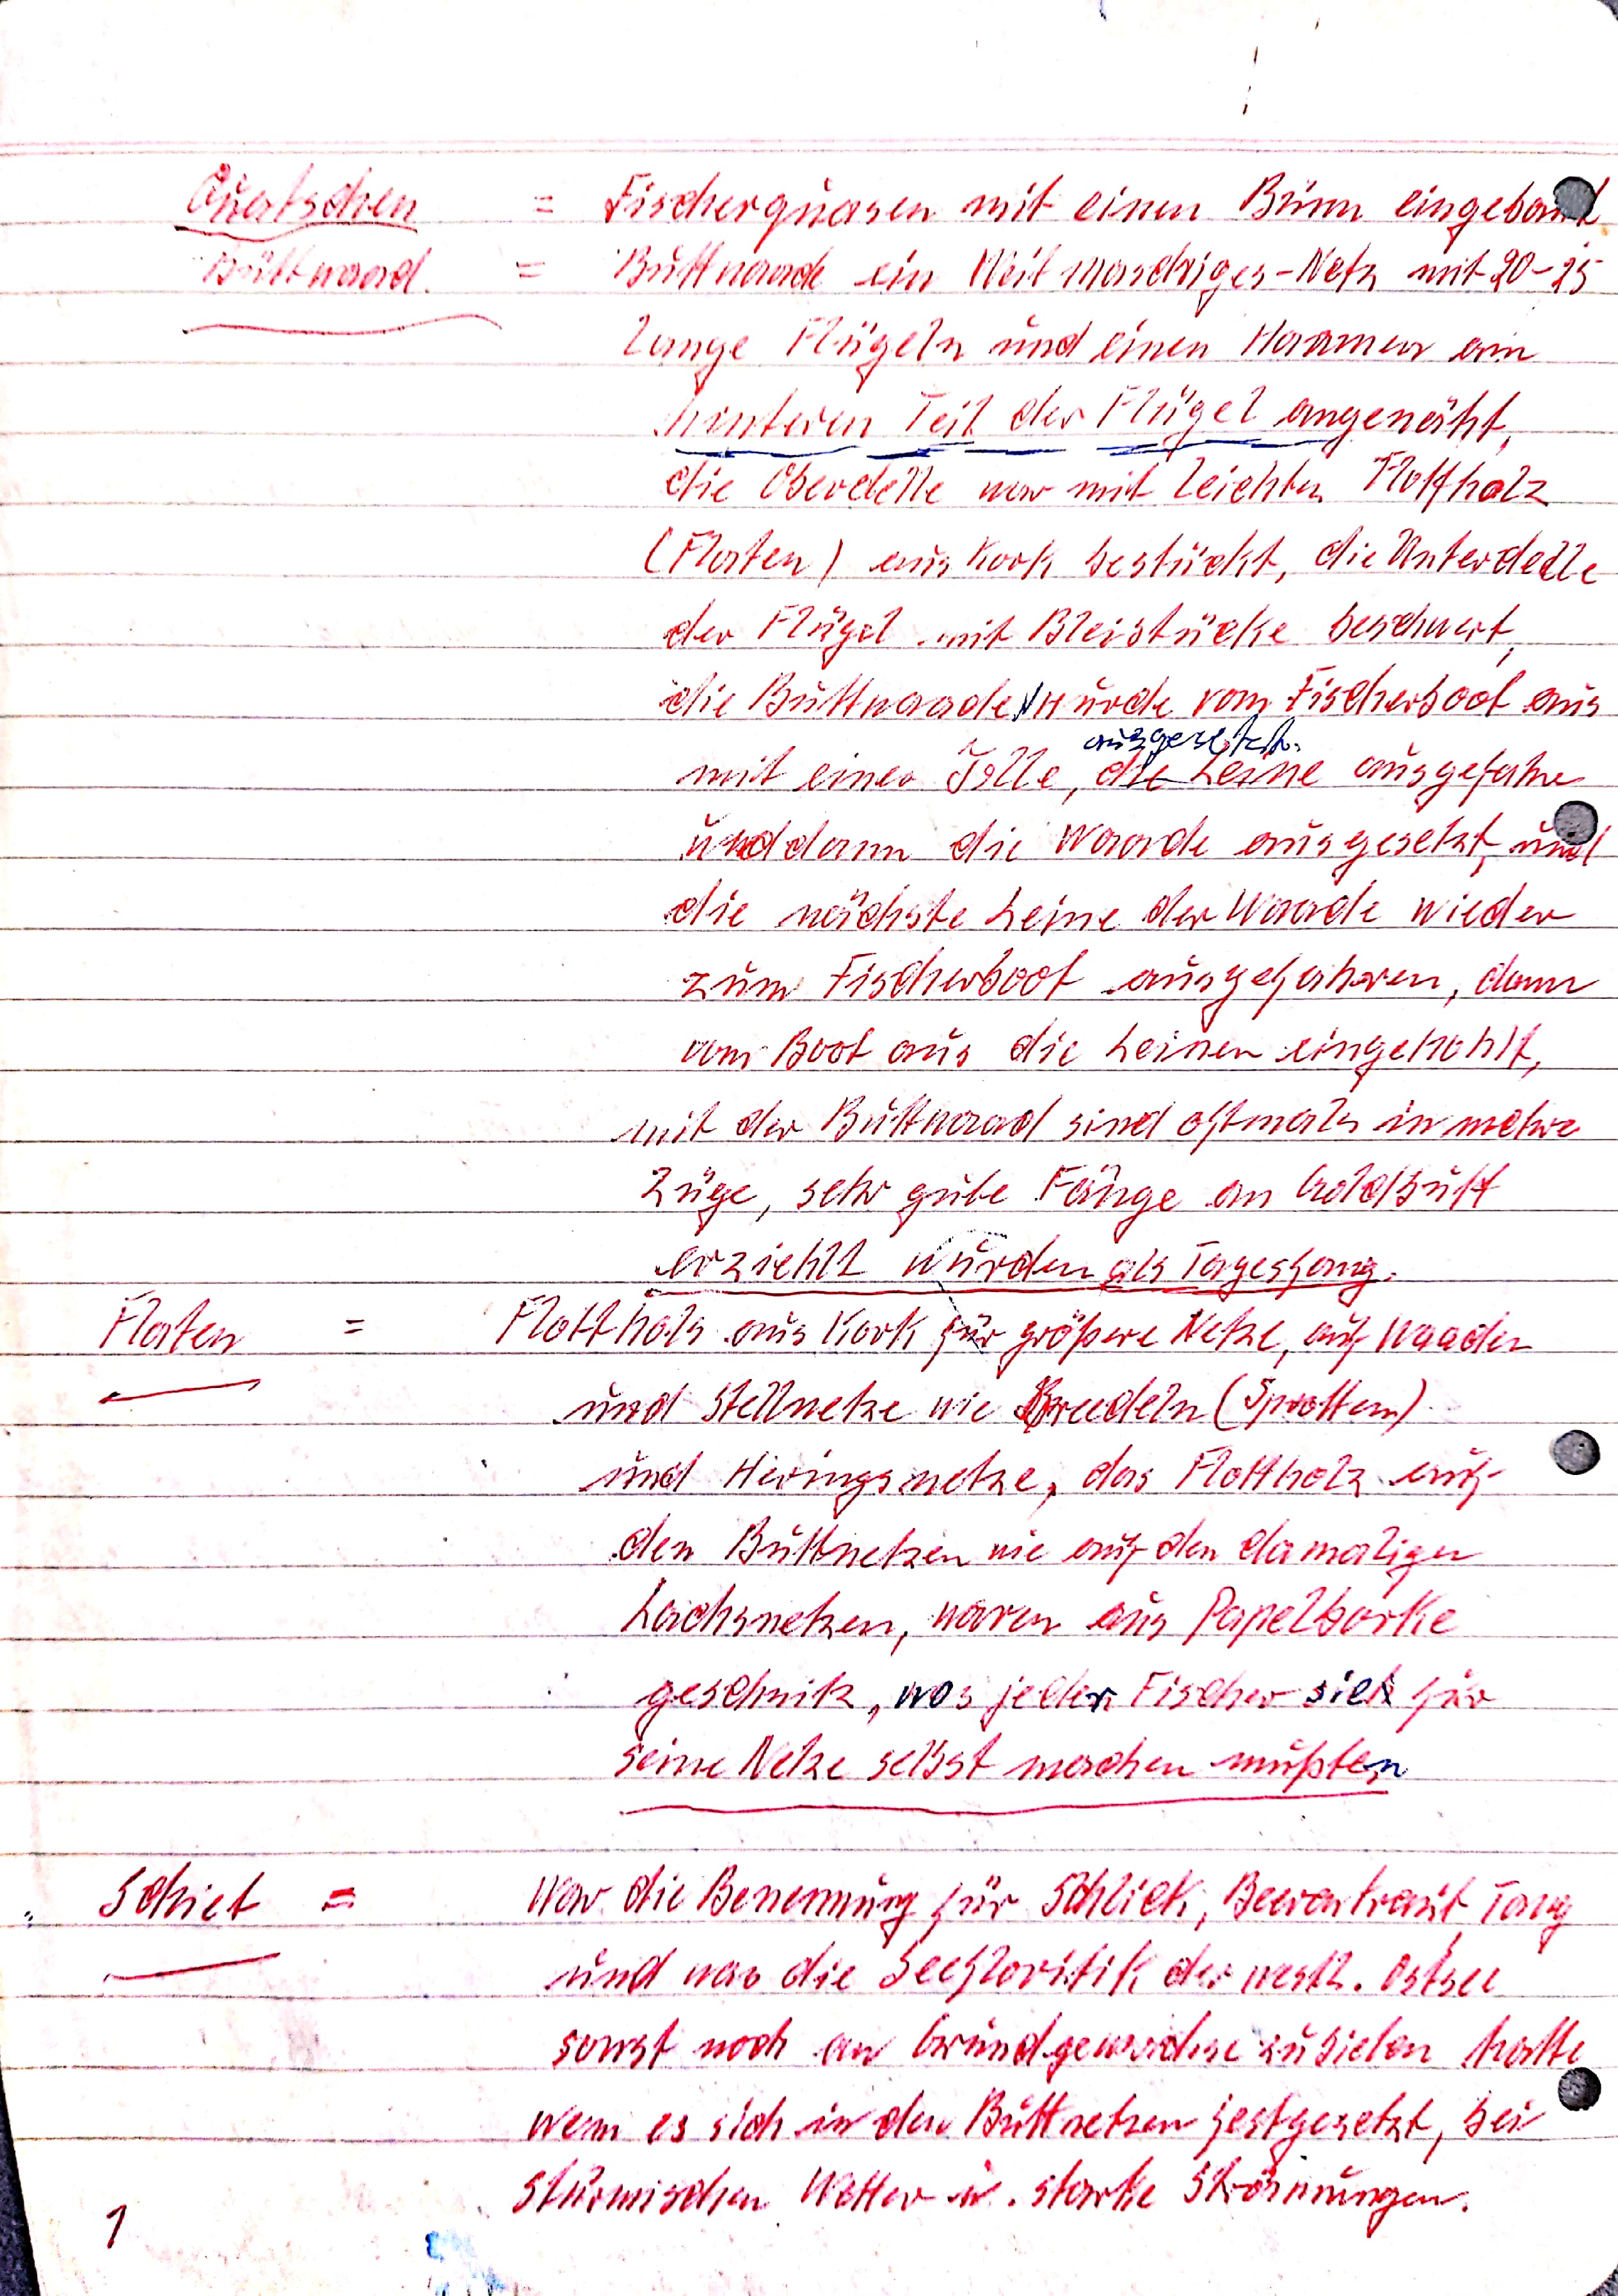 Quatschen = Fischerquasen mit einen Bünn eingebaut
Buttwaad. = Buttwaade ein Weitmaschiges-Netz mit 20-25
lange Flügeln und einen Haamen am
hinteren Teil der Flügel angenäht,
die Oberdelle war mit leichten Flottholz
(Flaten) aus Kork bestückt, die Unterdelle
der Flügel mit Bleistücke beschwert,
die Buttwaade wurde vom Fischerboot aus
ausgesetzt.
mit einer Jolle, die Leine ausgefahre
und dann die Waade ausgesetzt, und
die nächste Leine der Waade wieder
zum Fischerboot ausgefahren, dann
vom Boot aus die Leinen eingehohlt,
mit der Buttwaad sind oftmals in mehre
Züge, sehr gute Fänge an Goldbutt
erziehlt wurden als Tagesfang.
Flaten = Flottholz aus Kork für größere Netze, auf Waaden
und Stellnetze wie Breedeln (Sprotten)
und Heringsnetze, das Flottholz auf
den Buttnetzen wie auf den damaligen
Lachsnetzen, waren aus Papelborke
geschnitz, was jeder Fischer sich für
seine Netze selbst machen mußten
Schiet = War die Benennung für Schlick, Beerentraut Tang
und was die Seefloritik der westl. Ostsee
sonst noch an Grundgewächse zubieten hatte
wenn es sich in den Buttnetzen festgesetzt, bei
stürmischen Wetter u. starke Strömungen.
1